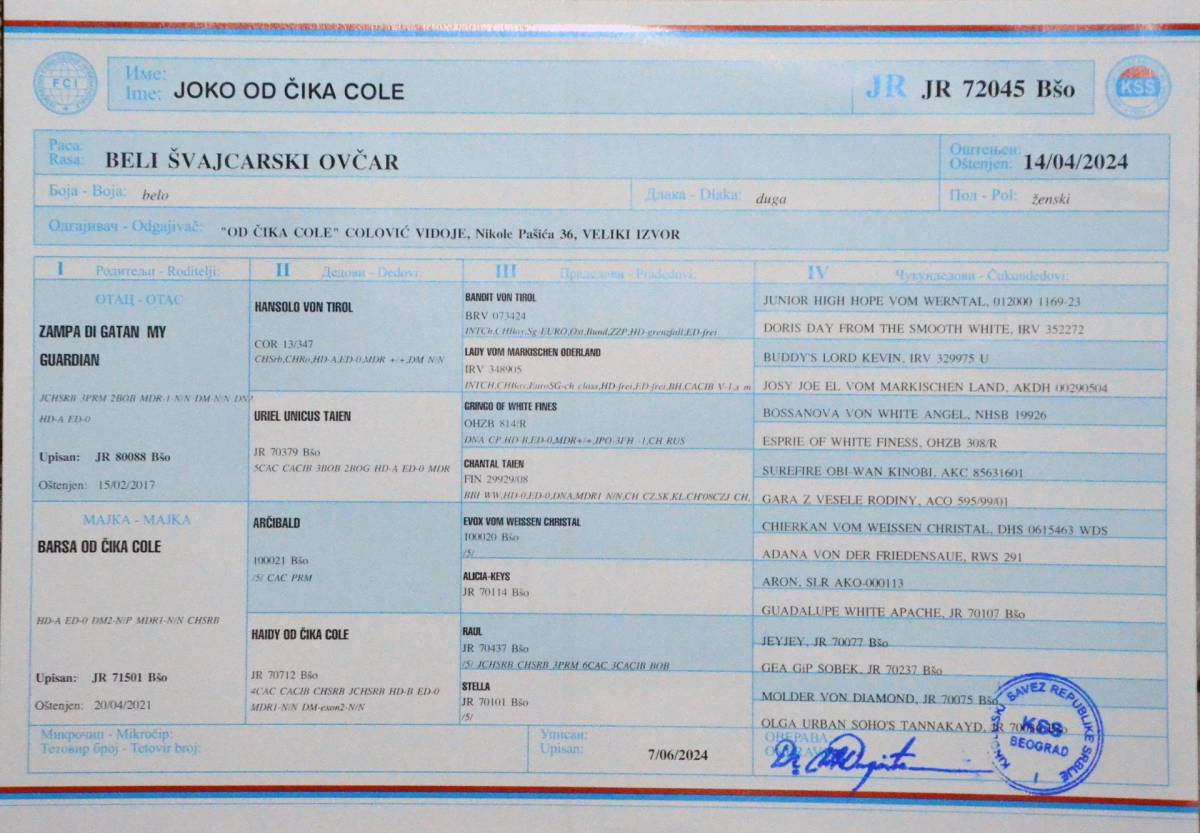 FCI
Име:
Ime: JOKO OD ČIKA COLE
JR JR 72045 Bšo
KSS
Раса:
Rasa: BELI ŠVAJCARSKI OVČAR
Оштењен:
Oštenjen: 14/04/2024
Боја - Boja: belo
Длака - Dlaka: duga
Пол - Pol: ženski
Одгајивач - Odgajivač: "OD ČIKA COLE" COLOVIĆ VIDOJE, Nikole Pašića 36, VELIKI IZVOR
I Родитељи - Roditelji:
II Дедови - Dedovi:
III Прадедови - Pradedovi:
IV Чукундедови - Čukundedovi:
ОТАЦ - OTAC
ZAMPA DI GATAN MY
GUARDIAN
JCHSRB 3PRM 2BOB MDR-1-N/N DM-N/N DNA
HD-A ED-0
Upisan: JR 80088 Bšo
Oštenjen: 15/02/2017
МАЈКА - MAJKA
BARSA OD ČIKA COLE
HD-A ED-0 DM2-N/P MDR1-N/N CHSRB
Upisan: JR 71501 Bšo
Oštenjen: 20/04/2021
HANSOLO VON TIROL
COR 13/347
CHSrb,CHRo,HD-A,ED-0,MDR +/+,DM N/N
URIEL UNICUS TAIEN
JR 70379 Bšo
5CAC CACIB 3BOB 2BOG HD-A ED-0 MDR
ARČIBALD
100021 Bšo
/5/ CAC PRM
HAIDY OD ČIKA COLE
JR 70712 Bšo
4CAC CACIB CHSRB JCHSRB HD-B ED-0
MDR1-N/N DM-exon2-N/N
BANDIT VON TIROL
BRV 073424
INTCh,CHBav,Sg-EURO,Ost,Bund,ZZP,HD-grenzfall,ED-frei
LADY VOM MARKISCHEN ODERLAND
IRV 348905
INTCH,CHBav,EuroSG-ch class,HD-frei,ED-frei,BH,CACIB V-1,x m
GRINGO OF WHITE FINES
OHZB 814/R
DNA CP,HD-B,ED-0,MDR+/+,IPO-3FH -1,CH RUS
CHANTAL TAIEN
FIN 29929/08
BBI WW,HD-0,ED-0,DNA,MDR1 N/N,CH CZ,SK,KL,CH'08CZJ CH,
EVOX VOM WEISSEN CHRISTAL
100020 Bšo
/5/
ALICIA-KEYS
JR 70114 Bšo
RAUL
JR 70437 Bšo
/5/ JCHSRB CHSRB 3PRM 6CAC 3CACIB BOB
STELLA
JR 70101 Bšo
/5/
JUNIOR HIGH HOPE VOM WERNTAL, 012000 1169-23
DORIS DAY FROM THE SMOOTH WHITE, IRV 352272
BUDDY'S LORD KEVIN, IRV 329975 U
JOSY JOE EL VOM MARKISCHEN LAND, AKDH 00290504
BOSSANOVA VON WHITE ANGEL, NHSB 19926
ESPRIE OF WHITE FINESS, OHZB 308/R
SUREFIRE OBI-WAN KINOBI, AKC 85631601
GARA Z VESELE RODINY, ACO 595/99/01
CHIERKAN VOM WEISSEN CHRISTAL, DHS 0615463 WDS
ADANA VON DER FRIEDENSAUE, RWS 291
ARON, SLR AKO-000113
GUADALUPE WHITE APACHE, JR 70107 Bšo
JEYJEY, JR 70077 Bšo
GEA GiP SOBEK, JR 70237 Bšo
MOLDER VON DIAMOND, JR 70075 Bšo
OLGA URBAN SOHO'S TANNAKAYD, JR
Микрочип - Mikročip:
Тетовир број - Tetovir broj:
Уписан:
Upisan: 7/06/2024
ОВЕРАВА:
KINOLOŠKI SAVEZ REPUBLIKE SRBIJE
KSS
BEOGRAD
1